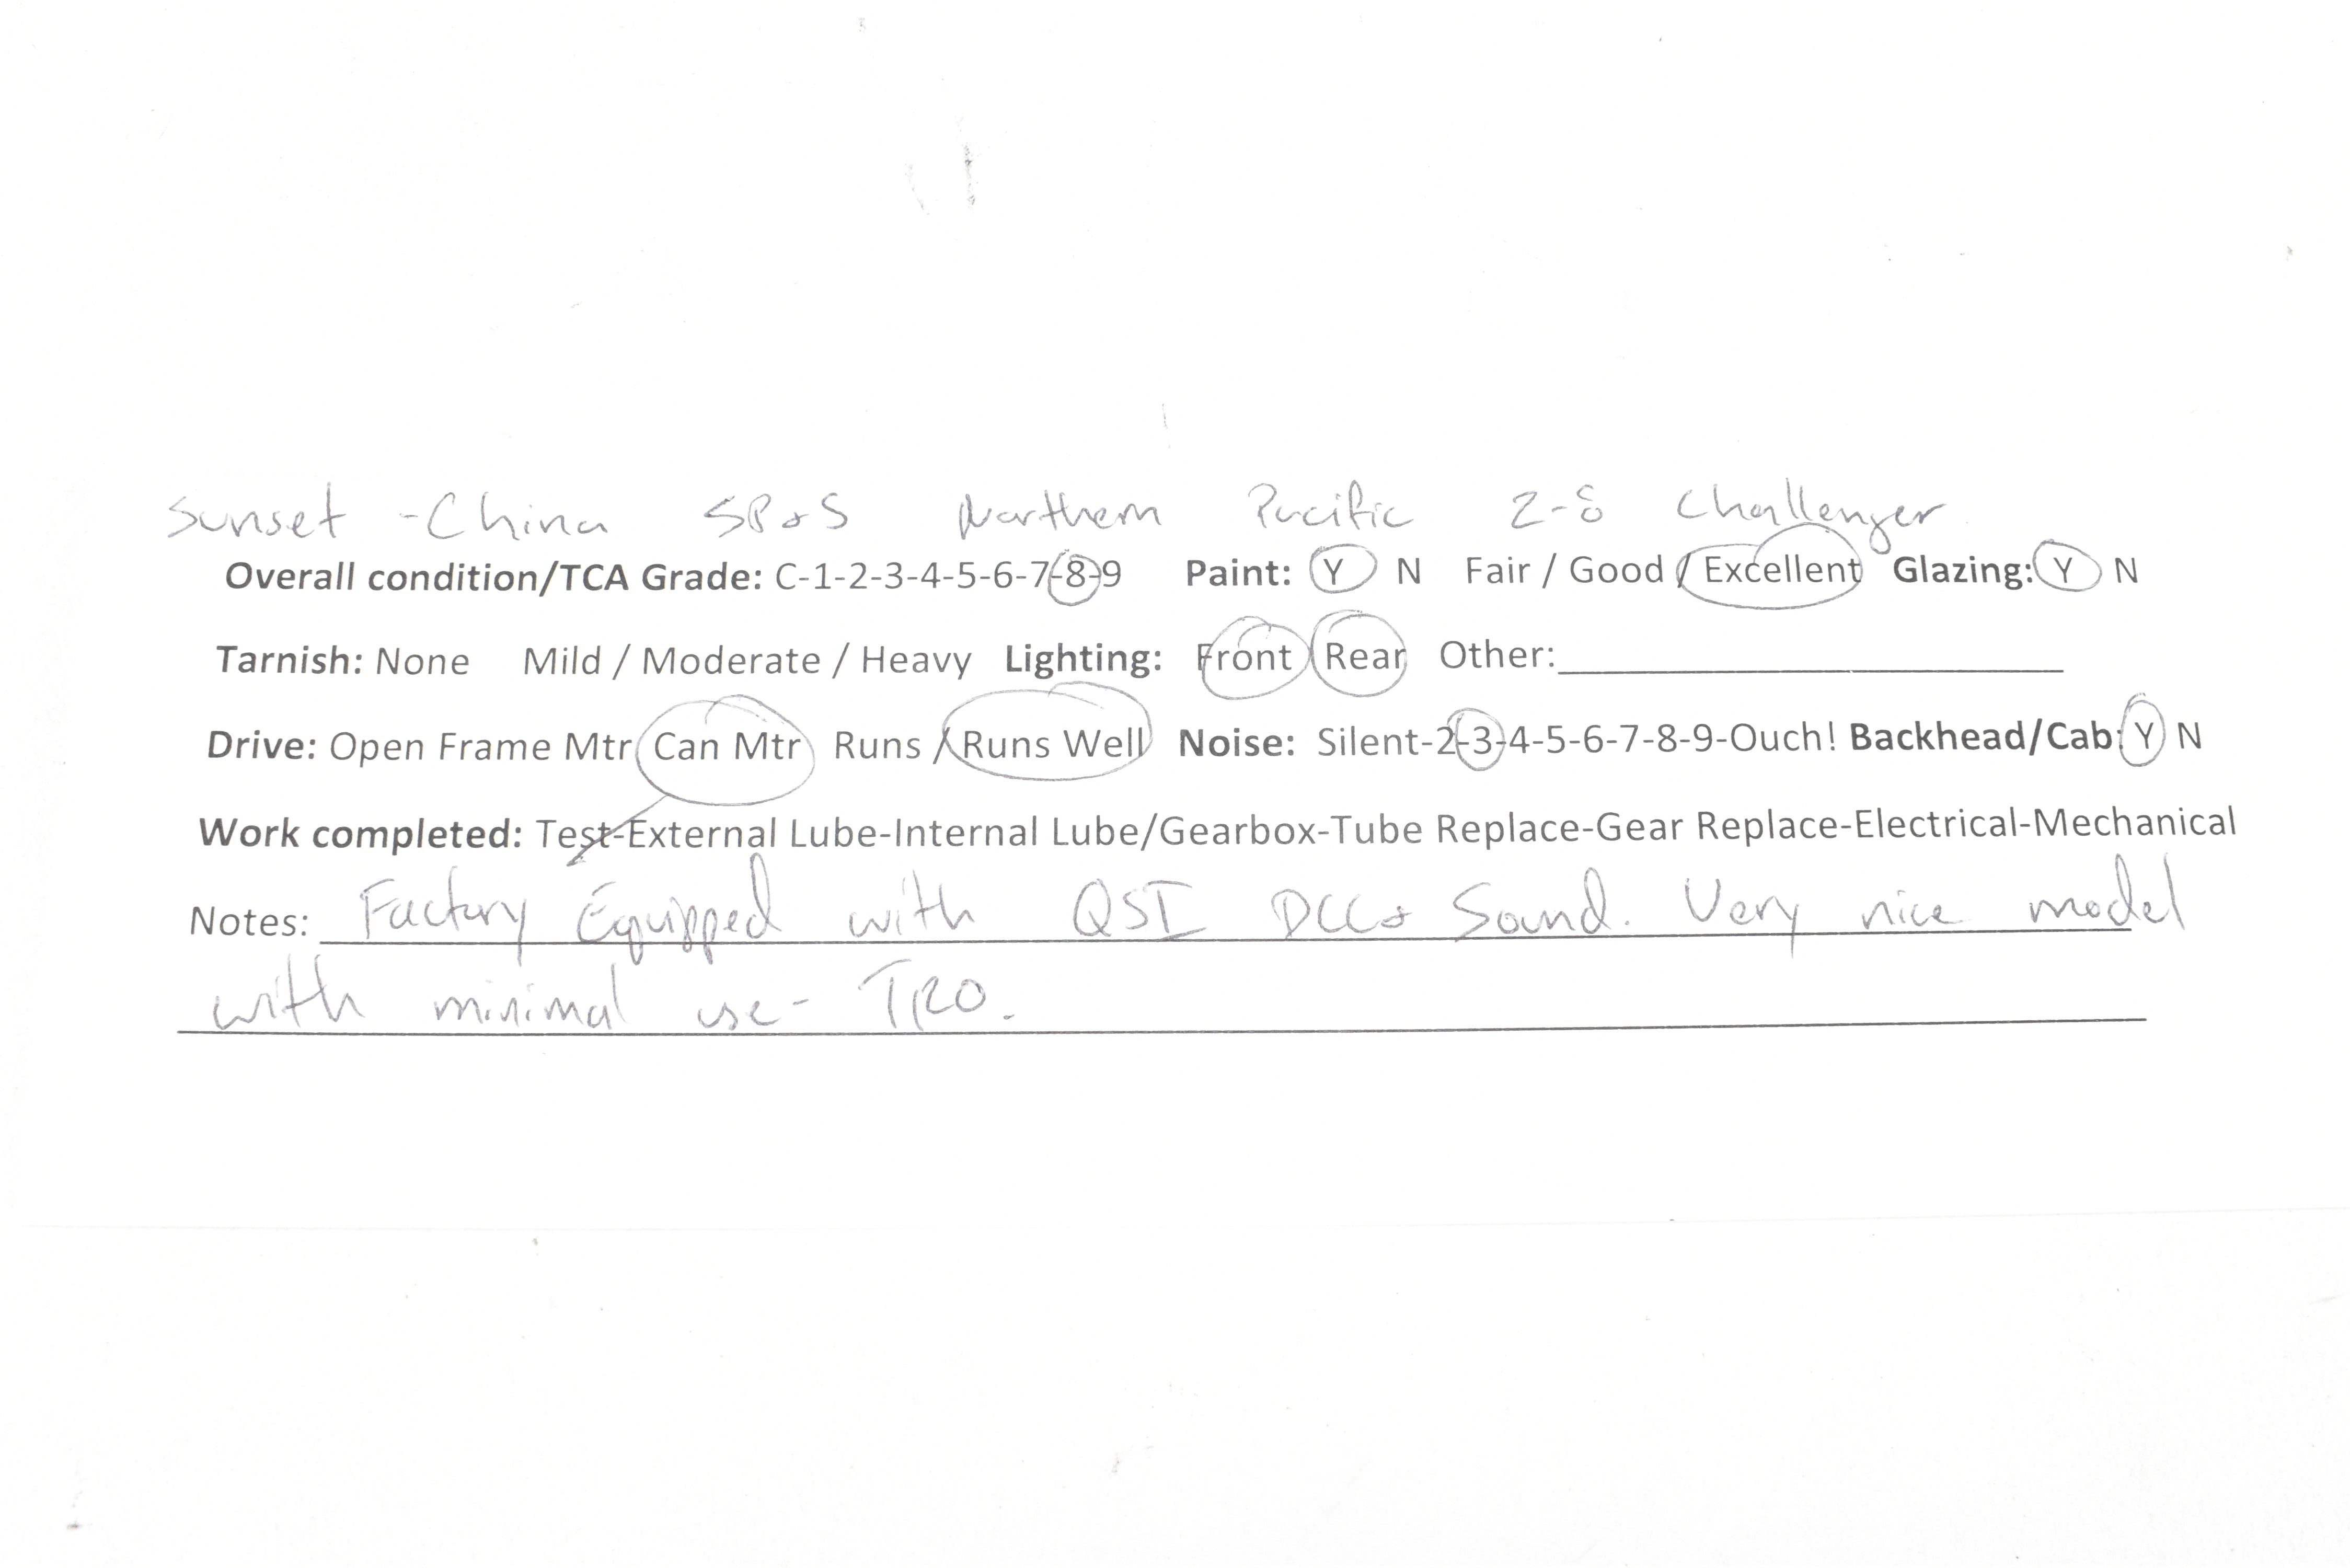 Sunset - China SP&S Northern Pacific Z-8 Challenger
Overall condition/TCA Grade: C-1-2-3-4-5-6-7-8-9 Paint: Y N Fair / Good / Excellent Glazing: Y N
Tarnish: None Mild / Moderate / Heavy Lighting: Front Rear Other:
Drive: Open Frame Mtr Can Mtr Runs / Runs Well Noise: Silent-2-3-4-5-6-7-8-9-Ouch! Backhead/Cab: Y N
Work completed: Test-External Lube-Internal Lube/Gearbox-Tube Replace-Gear Replace-Electrical-Mechanical
Notes: Factory Equipped with QSI DCC & Sound. Very nice model
with minimal use - TRO.